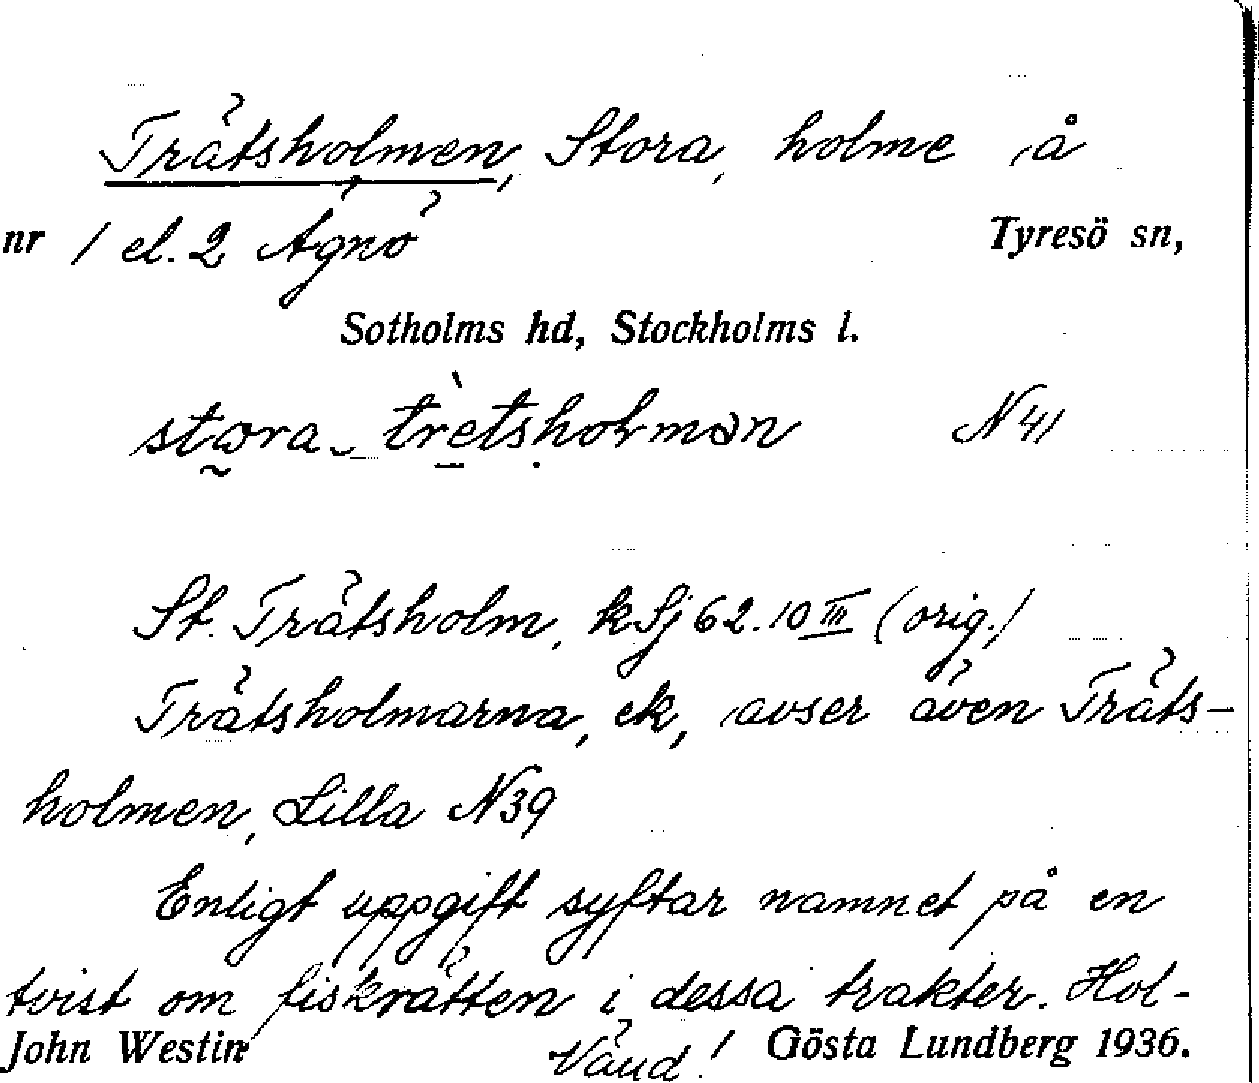 Trätsholmen, Stora, holme å
nr 1 el. 2 Ägnö Tyresö sn,
Sotholms hd, Stockholms l.
stora trètsholmən N 41
St. Trätsholm, kSj 62.10 III (orig.)
Trätsholmarna, ek, avser även Träts-
holmen, Lilla N39
Enligt uppgift syftar namnet på en
tvist om fiskrätten i dessa trakter. Hol-
John Westin Vänd! Gösta Lundberg 1936.